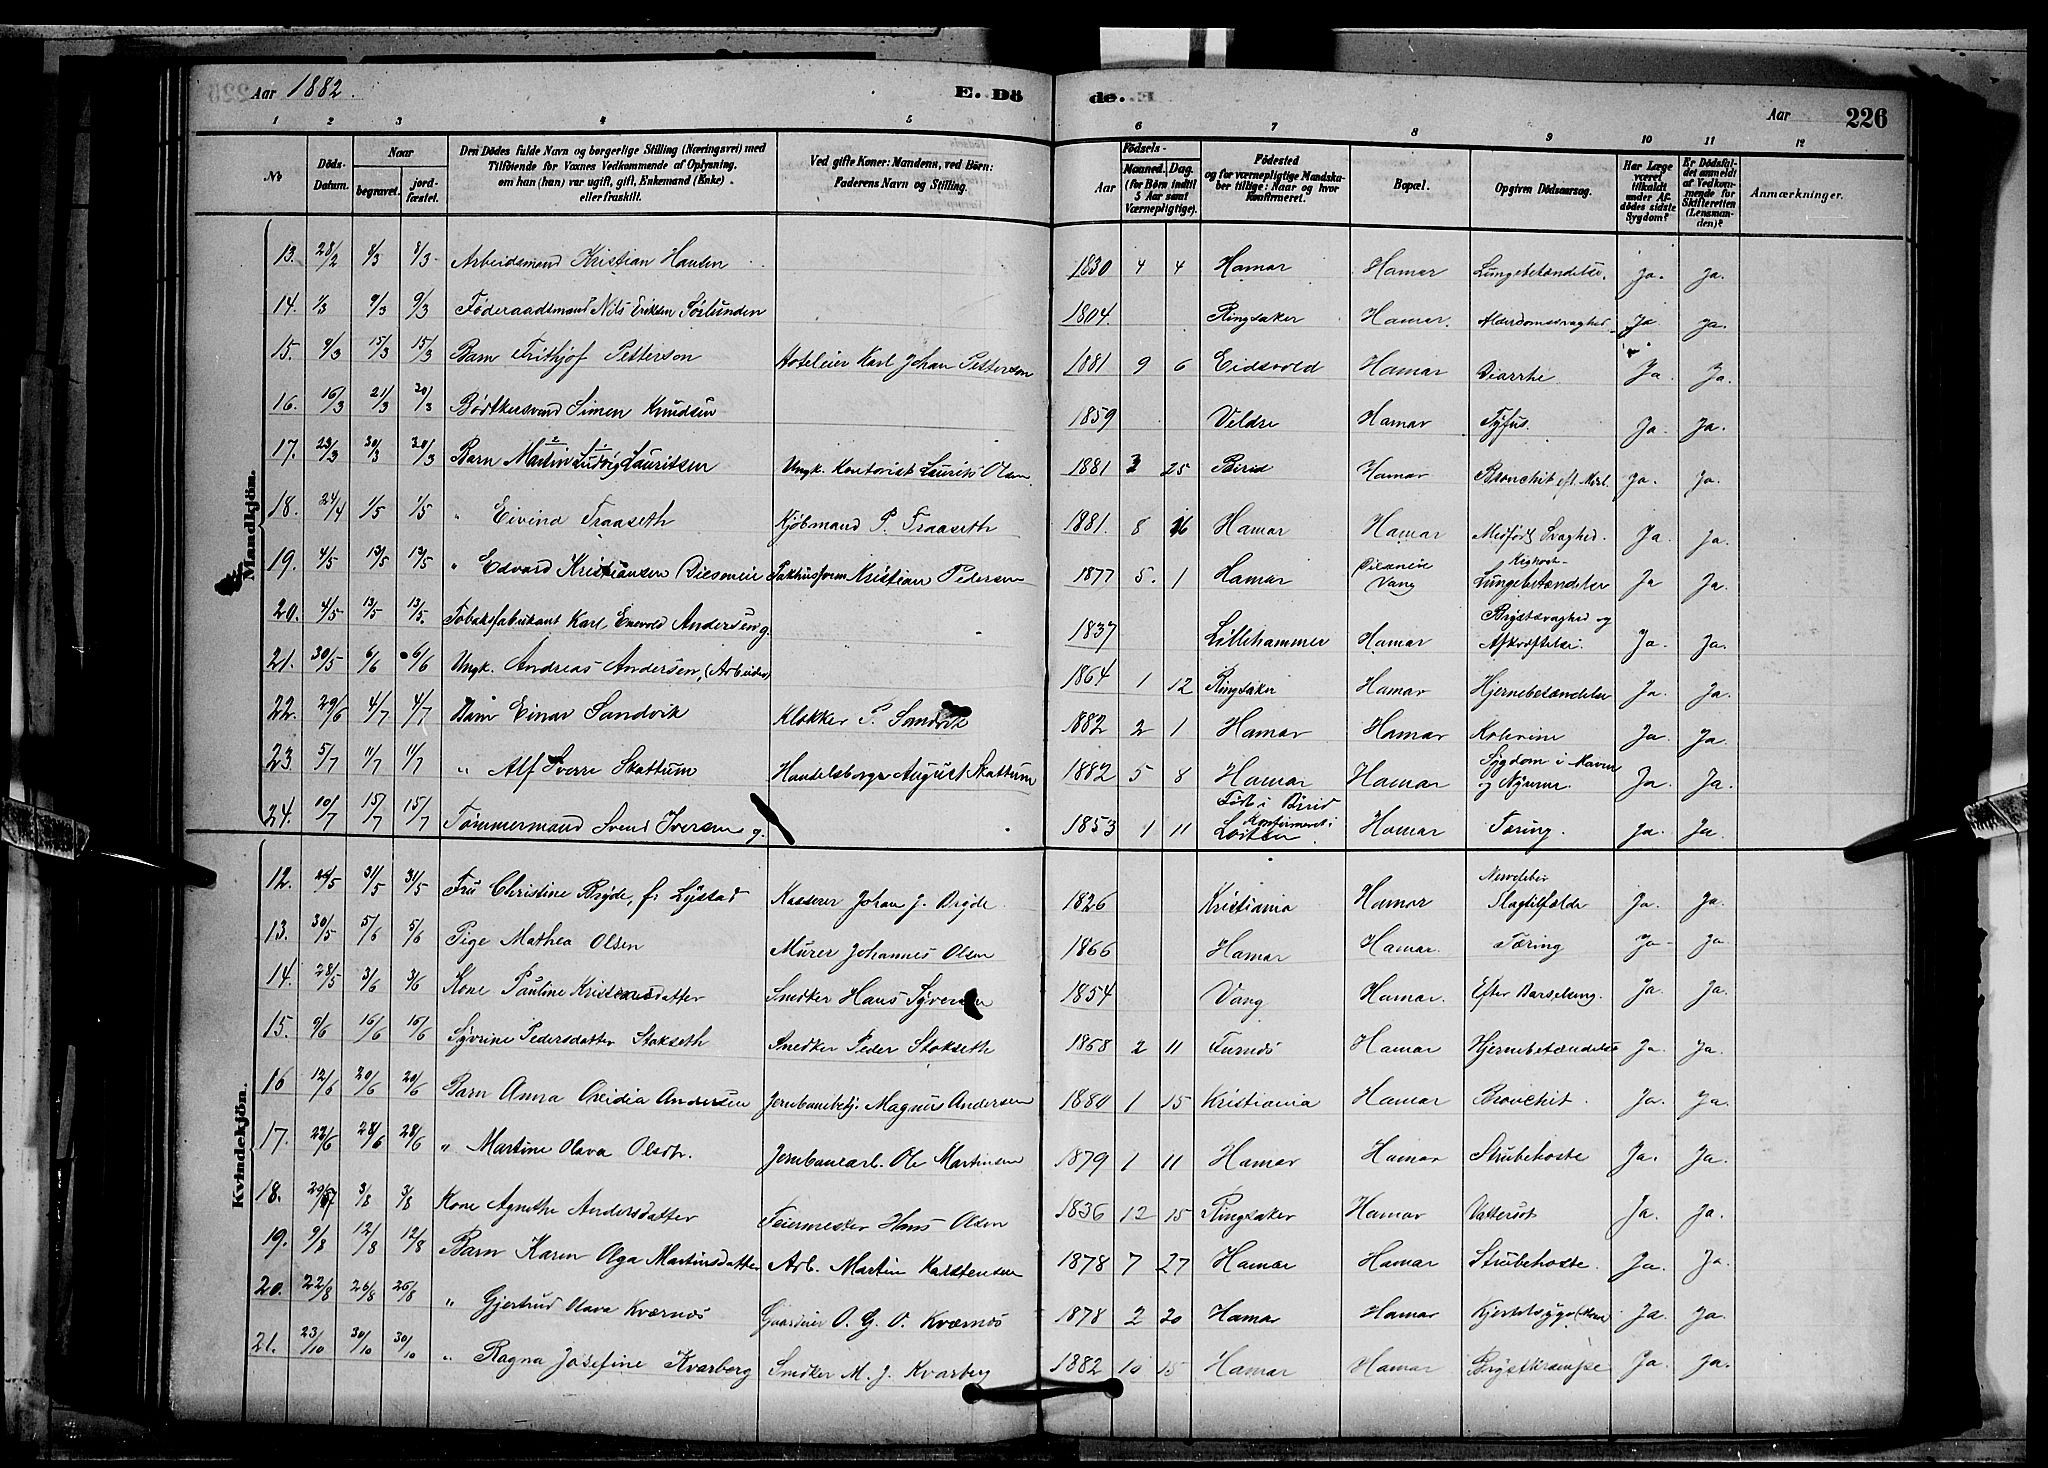 Aar 1882. E. Dö
de. Aar 226
1 2 3 4 5 6 7 8 9 10 11 12
No
Döds-Datum.
Naar begravet. jordfæstet.
Den Dödes fulde Navn og borgerlige Stilling (Næringsvei) med Tilföiende for Voxnes Vedkommende af Oplysning, om han (hun) var ugift, gift, Enkemand (Enke) eller fraskilt.
Ved gifte Koner: Mandens, ved Börn: Faderens Navn og Stilling.
Födsels-
Aar Maaned. Dag. (for Børn indtil 5 Aar samt Værnepligtige).
Födested og for værnepligtige Mandskaber tillige: Naar og hvor konfirmeret.
Bopæl.
Opgiven Dödsaarsag.
Har Læge været tilkaldt under Afdödes sidste Sygdom?
Er Dödsfaldet anmeldt af Vedkommende for Skifteretten (Lensmanden)?
Anmærkninger.
Mandkjön.
13. 28/2 8/3 8/3 Arbeidsmand Kristian Hansen 1830 4 4 Hamar Hamar Lungebetændelse. Ja. Ja.
14. 1/3 9/3 9/3 Føderaadsmand Nils Eriksen Sørlunden 1804. Ringsaker Hamar. Alderdomssvaghed Ja Ja.
15. 9/3 15/3 15/3 Barn Frithjof Petterson Hoteleier Karl Johan Petterson 1881 9 6 Eidsvold Hamar Diarrhe Ja Ja.
16. 16/3 21/3 20/3 Bødtkersvend Simen Knudsen 1859 Veldre Hamar Tyfus Ja Ja.
17. 23/3 30/3 30/3 Barn Martin Ludvig Lauritsen Ungk. Kontorist Laurits Olsen 1881 3 25 Birid Hamar Bronchit eft. Mæsl. Ja. Ja.
18. 24/4 1/5 1/5 " Eivind Fraaseth Kjøbmand P. Fraaseth 1881. 8 16 Hamar Hamar Medfødt Svaghed. Ja Ja.
19. 4/5 13/5 13/5 " Edvard Kristiansen Diseneie Pakhusform Kristian Pedersen 1877 5. 1 Hamar Diseneie Vang Kighost- Lungebetændelse Ja Ja.
20. 4/5 13/5 13/5. Tobaksfabrikant Karl Enevold Andersen g. 1837 Lillehammer Hamar Brystsvaghed og Afkræftelse. Ja Ja.
21. 30/5 6/6 6/6 Ungk. Andreas Andersen, (Arbeider) 1864 1 12 Ringsaker Hamar Hjernebetændelse Ja. Ja.
22. 29/6 4/7 4/7 Barn Einar Sandvik Klokker P. Sandvik 1882 2 1 Hamar Hamar Kolerine Ja. Ja.
23 5/7 11/7 11/7 " Alf Sverre Skattum Handelsborger August Skattum 1882 5 8 Hamar Hamar Sygdom i Maven og Nyrerne Ja Ja.
24. 10/7 15/7 15/7 Tømmermand Svend Iversen g. 1853 1 11 Født i Birid Konfirmeret i Løiten Hamar Tæring. Ja. Ja.
Kvindekjön.
12. 31/5 31/5 Fru Christine Bryde, f. Lystad Kasserer Johan J. Bryde. 1826 Kristiania Hamar Nervefeber Slagtilfælde Ja. Ja.
13. 30/5 5/6 5/6 Pige Mathea Olsen Murer Johannes Olsen 1866 Hamar Hamar. Tæring Ja Ja.
14. 28/5 3/6 3/6 Kone Pauline Kristensdatter Snedker Hans Syversen 1854 Vang Hamar. Efter Barselseng. Ja Ja.
15. 9/6 16/6 16/6 Syvrine Pedersdatter Stokseth Snedker Peder Stokseth 1868 2 11 Furnæs Hamar Hjernebetændelse Ja. Ja.
16 12/6 20/6 20/6 Barn Anna Ovidia Andersen Jernbanebetj. Magnus Andersen 1880 1 15 Kristiania Hamar Bronchit. Ja. Ja.
17. 22/6 28/6 28/6 " Martine Olava Olsdtr. Jernbanearb. Ole Martinsen 1879 1 11 Hamar Hamar Strubehoste Ja. Ja
18. 29/7 3/8 3/8 Kone Agnethe Andersdatter Feiermester Hans Olsen 1836 12 15 Ringsaker Hamar Vattersot Ja. Ja.
19. 9/8 12/8 12/8 Barn Karen Olga Martinsdatter Arb. Martin Karstensen 1878 7 27 Hamar Hamar Strubehoste. Ja. Ja.
20. 22/8 26/8 26/8 " Gjertrud Olava Kværnæs Gaardeier O. G. O. Kværnæs 1878 2 20 Hamar Hamar Ja. Ja.
21. 23/10 30/10 30/10 " Ragna Josefine Kvarberg Snedker M. J. Kvarberg 1882 10 15 Hamar Hamar Brystkrampe Ja. Ja.